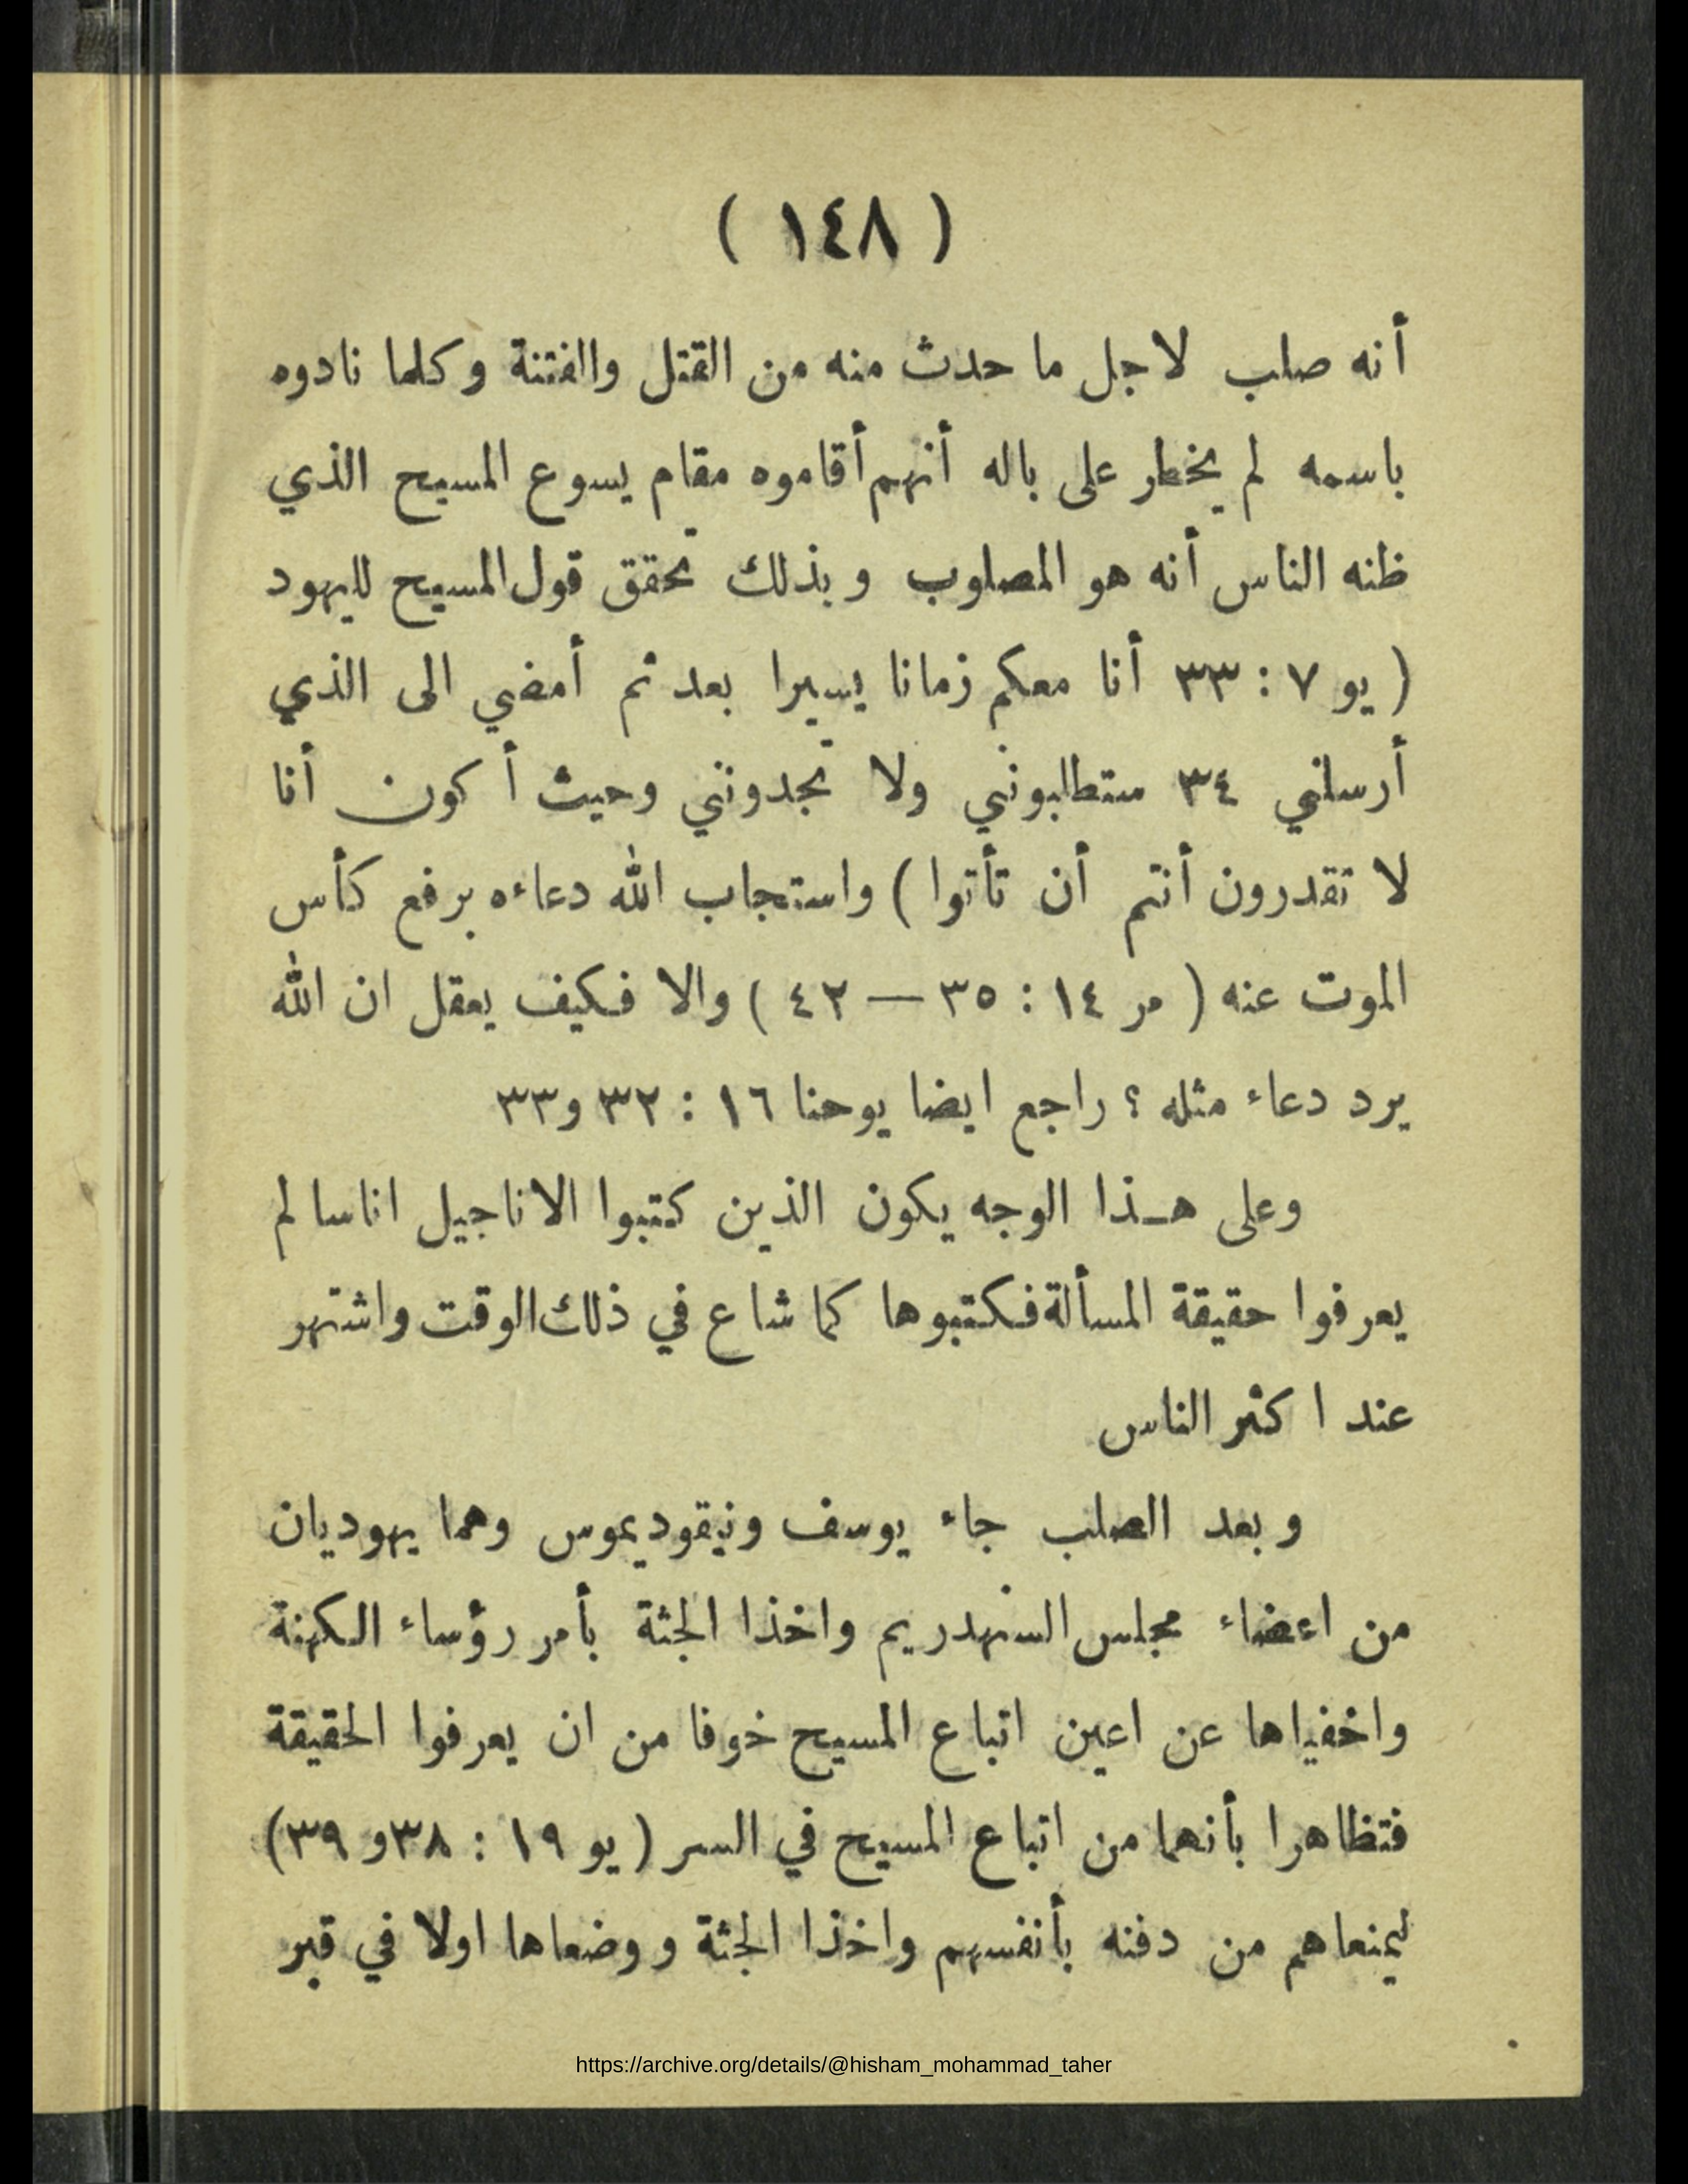 ( ١٤٨ )
أنه صلب لاجل ما حدث منه من القتل والفتنة وكلما نادوه
باسمه لم يخطر على باله أنهم أقاموه مقام يسوع المسيح الذي
ظنه الناس أنه هو المصلوب وبذلك تحقق قول المسيح لليهود
( يو ٧ : ٣٣ أنا معكم زمانا يسيرا بعد ثم أمضي الى الذي
أرسلني ٣٤ ستطلبونني ولا تجدونني وحيث أكون أنا
لا تقدرون أنتم أن تأتوا ) واستجاب الله دعاءه برفع كأس
الموت عنه ( مر ١٤ : ٣٥ — ٤٢ ) والا فكيف يعقل ان الله
يرد دعاء مثله ؟ راجع ايضا يوحنا ١٦ : ٣٢ و٣٣
وعلى هـذا الوجه يكون الذين كتبوا الاناجيل اناسا لم
يعرفوا حقيقة المسألة فكتبوها كما شاع في ذلك الوقت واشتهر
عند اكثر الناس
وبعد الصلب جاء يوسف ونيقوديموس وهما يهوديان
من اعضاء مجلس السنهدريم واخذا الجثة بأمر رؤساء الكهنة
واخفياها عن اعين اتباع المسيح خوفا من ان يعرفوا الحقيقة
فتظاهرا بأنهما من اتباع المسيح في السر ( يو ١٩ : ٣٨و ٣٩)
ليمنعاهم من دفنه بأنفسهم واخذا الجثة ووضعاها اولا في قبر
https://archive.org/details/@hisham_mohammad_taher